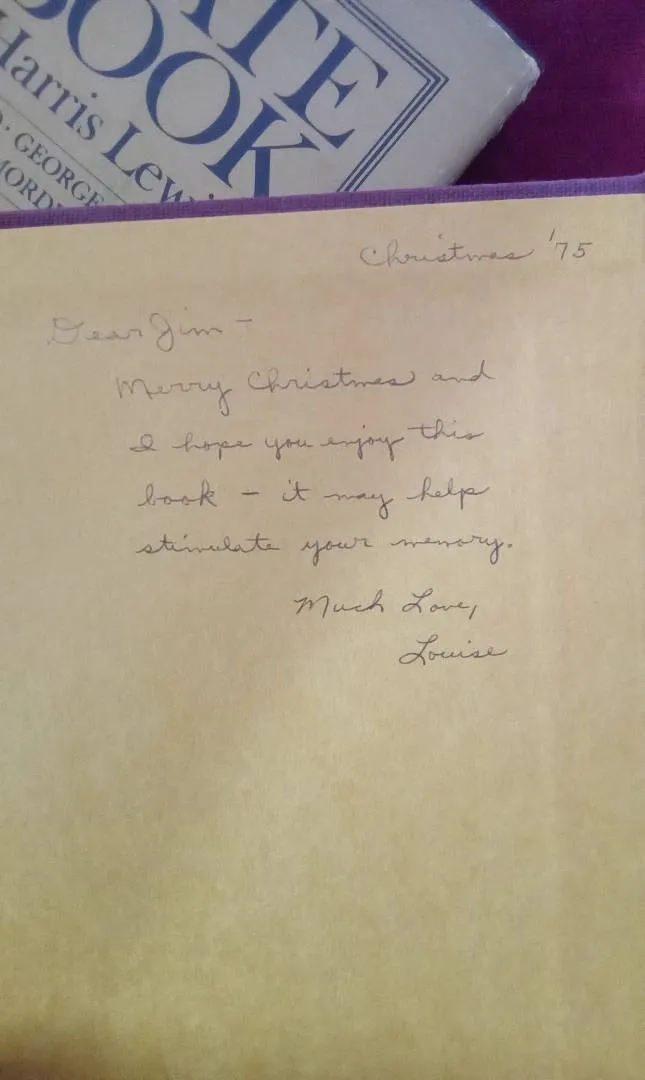 ATE
BOOK
Harris Lewi
GEORGE
MORD
Christmas '75
Dear Jim -
Merry Christmas and
I hope you enjoy this
book - it may help
stimulate your memory.
Much Love,
Louise